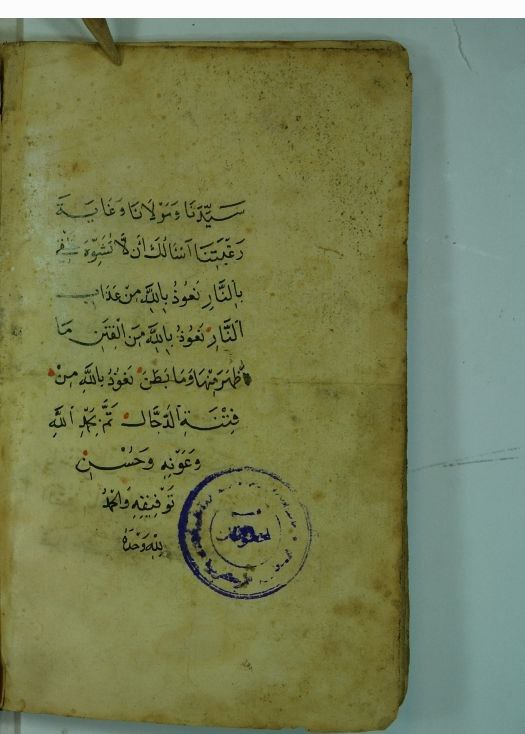 سَيِّدَنَا وَمَوْلَانَا وَغَايَةَ
رَغْبَتِنَا اَسْئَالُكَ أَن لَا تُشَوِّهَ
بِالنَّارِ نَعُوذُ بِاللَّهِ مِنْ عَذَابِ
النَّارِ نَعُوذُ بِاللَّهِ مِنَ الْفِتَنِ مَا
ظَهَرَ مِنْهَا وَمَا بَطَنَ نَعُوذُ بِاللَّهِ مِنْ
فِتْنَةِ الدَّجَّالِ تَمَّ بِحَمْدِ اللَّهِ
وَعَوْنِهِ وَحُسْنِ
تَوْفِيقِهِ وَالْحَمْدُ
لِلَّهِ وَحْدَهُ